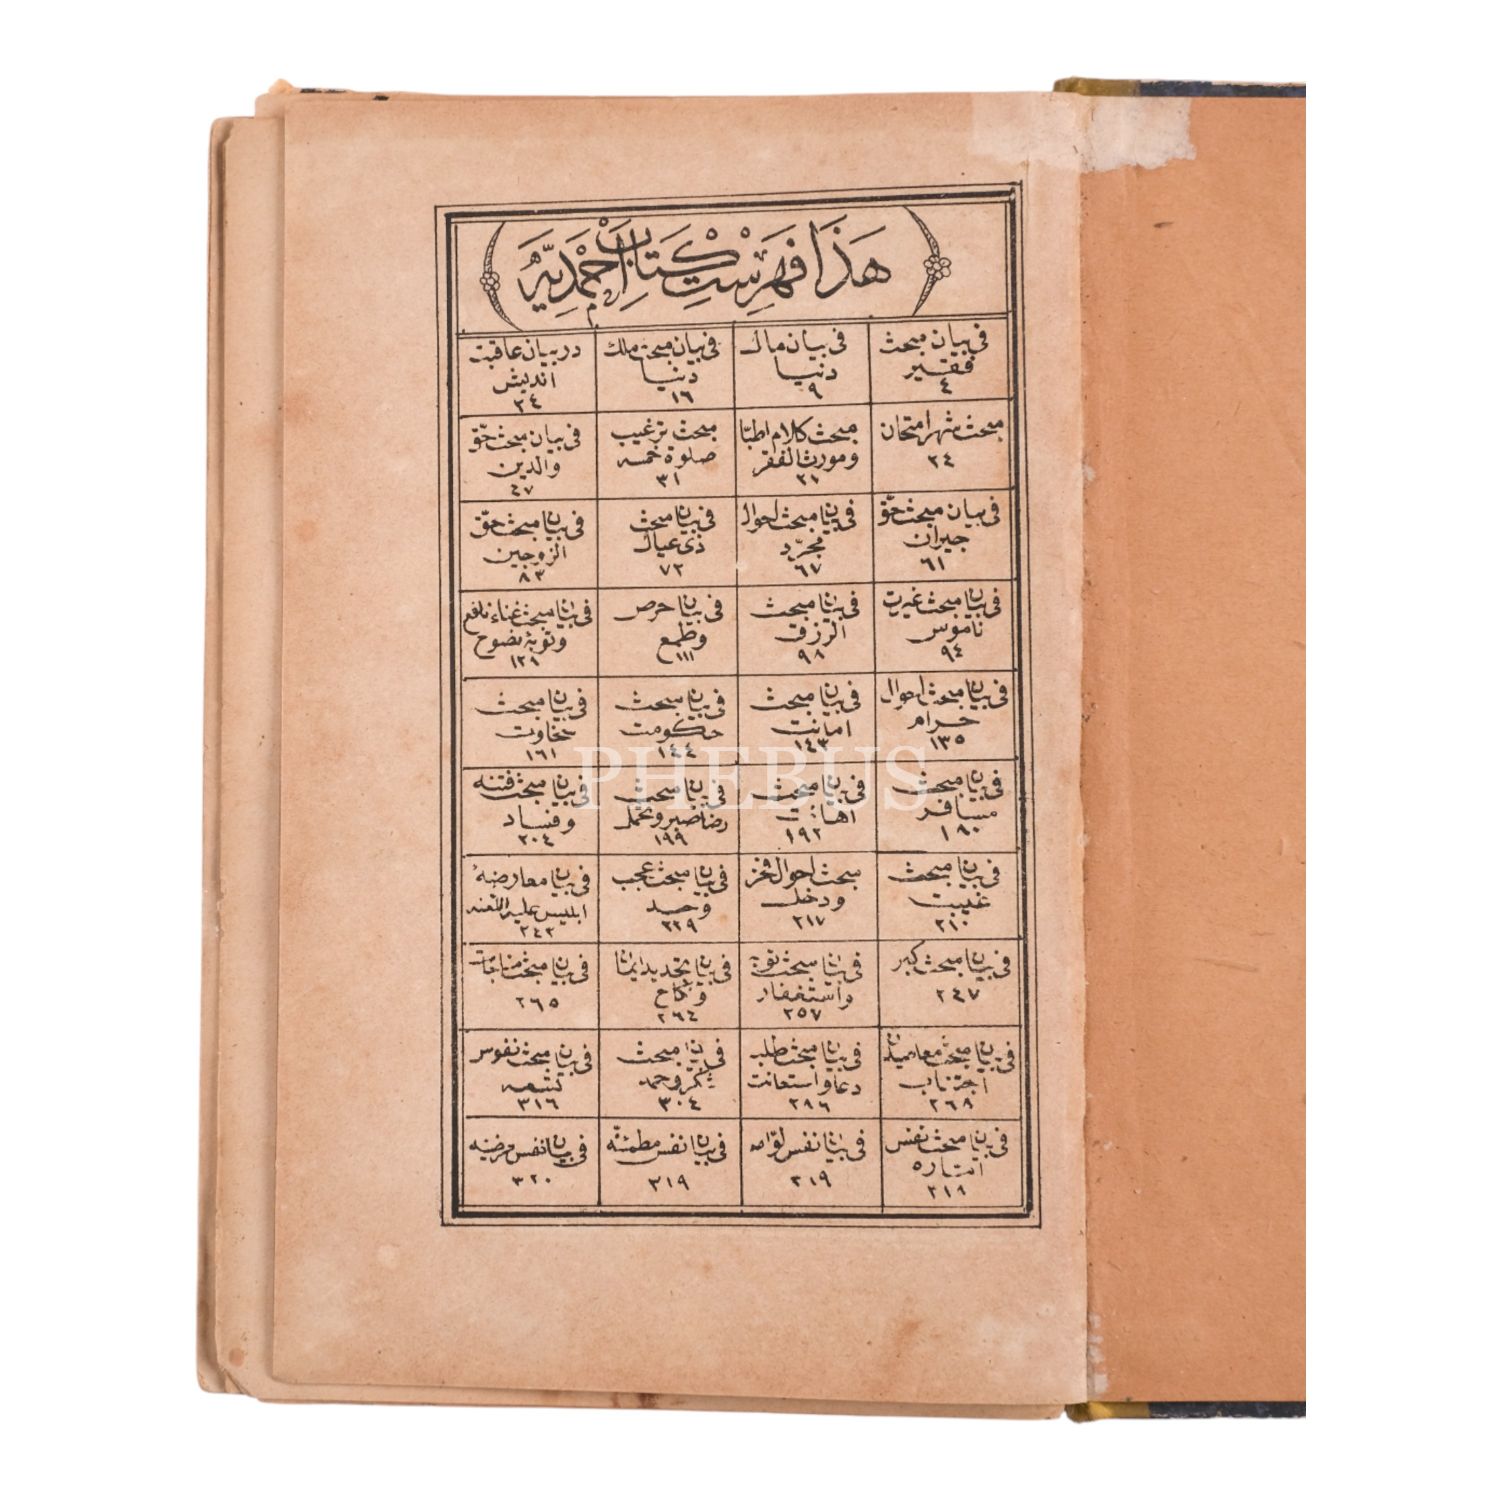 هَذَا فَهْرِسْتِ كِتَابِ اَحْمَدِيَّه
فی بیان مبحث
فقیر
٤
فی بیان مال
دنیا
٩
فی بیان مبحث ملك
دنیا
١٦
در بیان عاقبت
اندیش
٢٤
مبحث شهر امتحان
٢٤
مبحث كلام اطبّا
ومورث الفقر
٢١
مبحث ترغیب
صلوة خمسه
٣١
فی بیان مبحث حقّ
والدین
٤٧
فی بیان مبحث حقّ
جیران
٦١
فی بیان مبحث احوال
مجرّد
٦٧
فی بیان مبحث
ذی عیال
٧٢
فی بیان مبحث حقّ
الزوجین
٨٣
فی بیان مبحث غیرت
ناموس
٩٤
فی بیان مبحث
الرزق
٩٨
فی بیان حرص
وطمع
١١١
فی بیان مبحث غناء نافع
وتوبۀ نصوح
١٢٩
فی بیان مبحث احوال
حرام
١٣٥
فی بیان مبحث
امانت
١٤٣
فی بیان مبحث
حكومت
١٤٤
فی بیان مبحث
سخاوت
١٦١
فی بیان مبحث
مسافر
١٨٠
فی بیان مبحث
اهانت
١٩٢
فی بیان مبحث
رضا صبر وتحمل
١٩٩
فی بیان مبحث فتنه
وفساد
٢٠٤
فی بیان مبحث
غیبت
٢١٠
مبحث احوال فخر
ودخل
٢١٧
فی بیان مبحث عجب
وحسد
٢٢٩
فی بیان معارضۀ
ابلیس علیه اللعنه
٢٤٢
فی بیان مبحث كبر
٢٤٧
فی بیان مبحث توبه
واستغفار
٢٥٧
فی بیان تجدید ایمان
ونكاح
٢٦٤
فی بیان مبحث مناجات
٢٦٥
فی بیان مبحث معاصیدن
اجتناب
٢٦٨
فی بیان مبحث طلب
دعا واستعانت
٢٨٦
فی بیان مبحث
شكر وحمد
٣٠٤
فی بیان مبحث نفوس
تسعه
٣١٦
فی بیان مبحث نفس
امّاره
٣١٨
فی بیان نفس لوّامه
٣١٩
فی بیان نفس مطمئنّه
٣١٩
فی بیان نفس مرضیّه
٣٢٠
PHEBUS